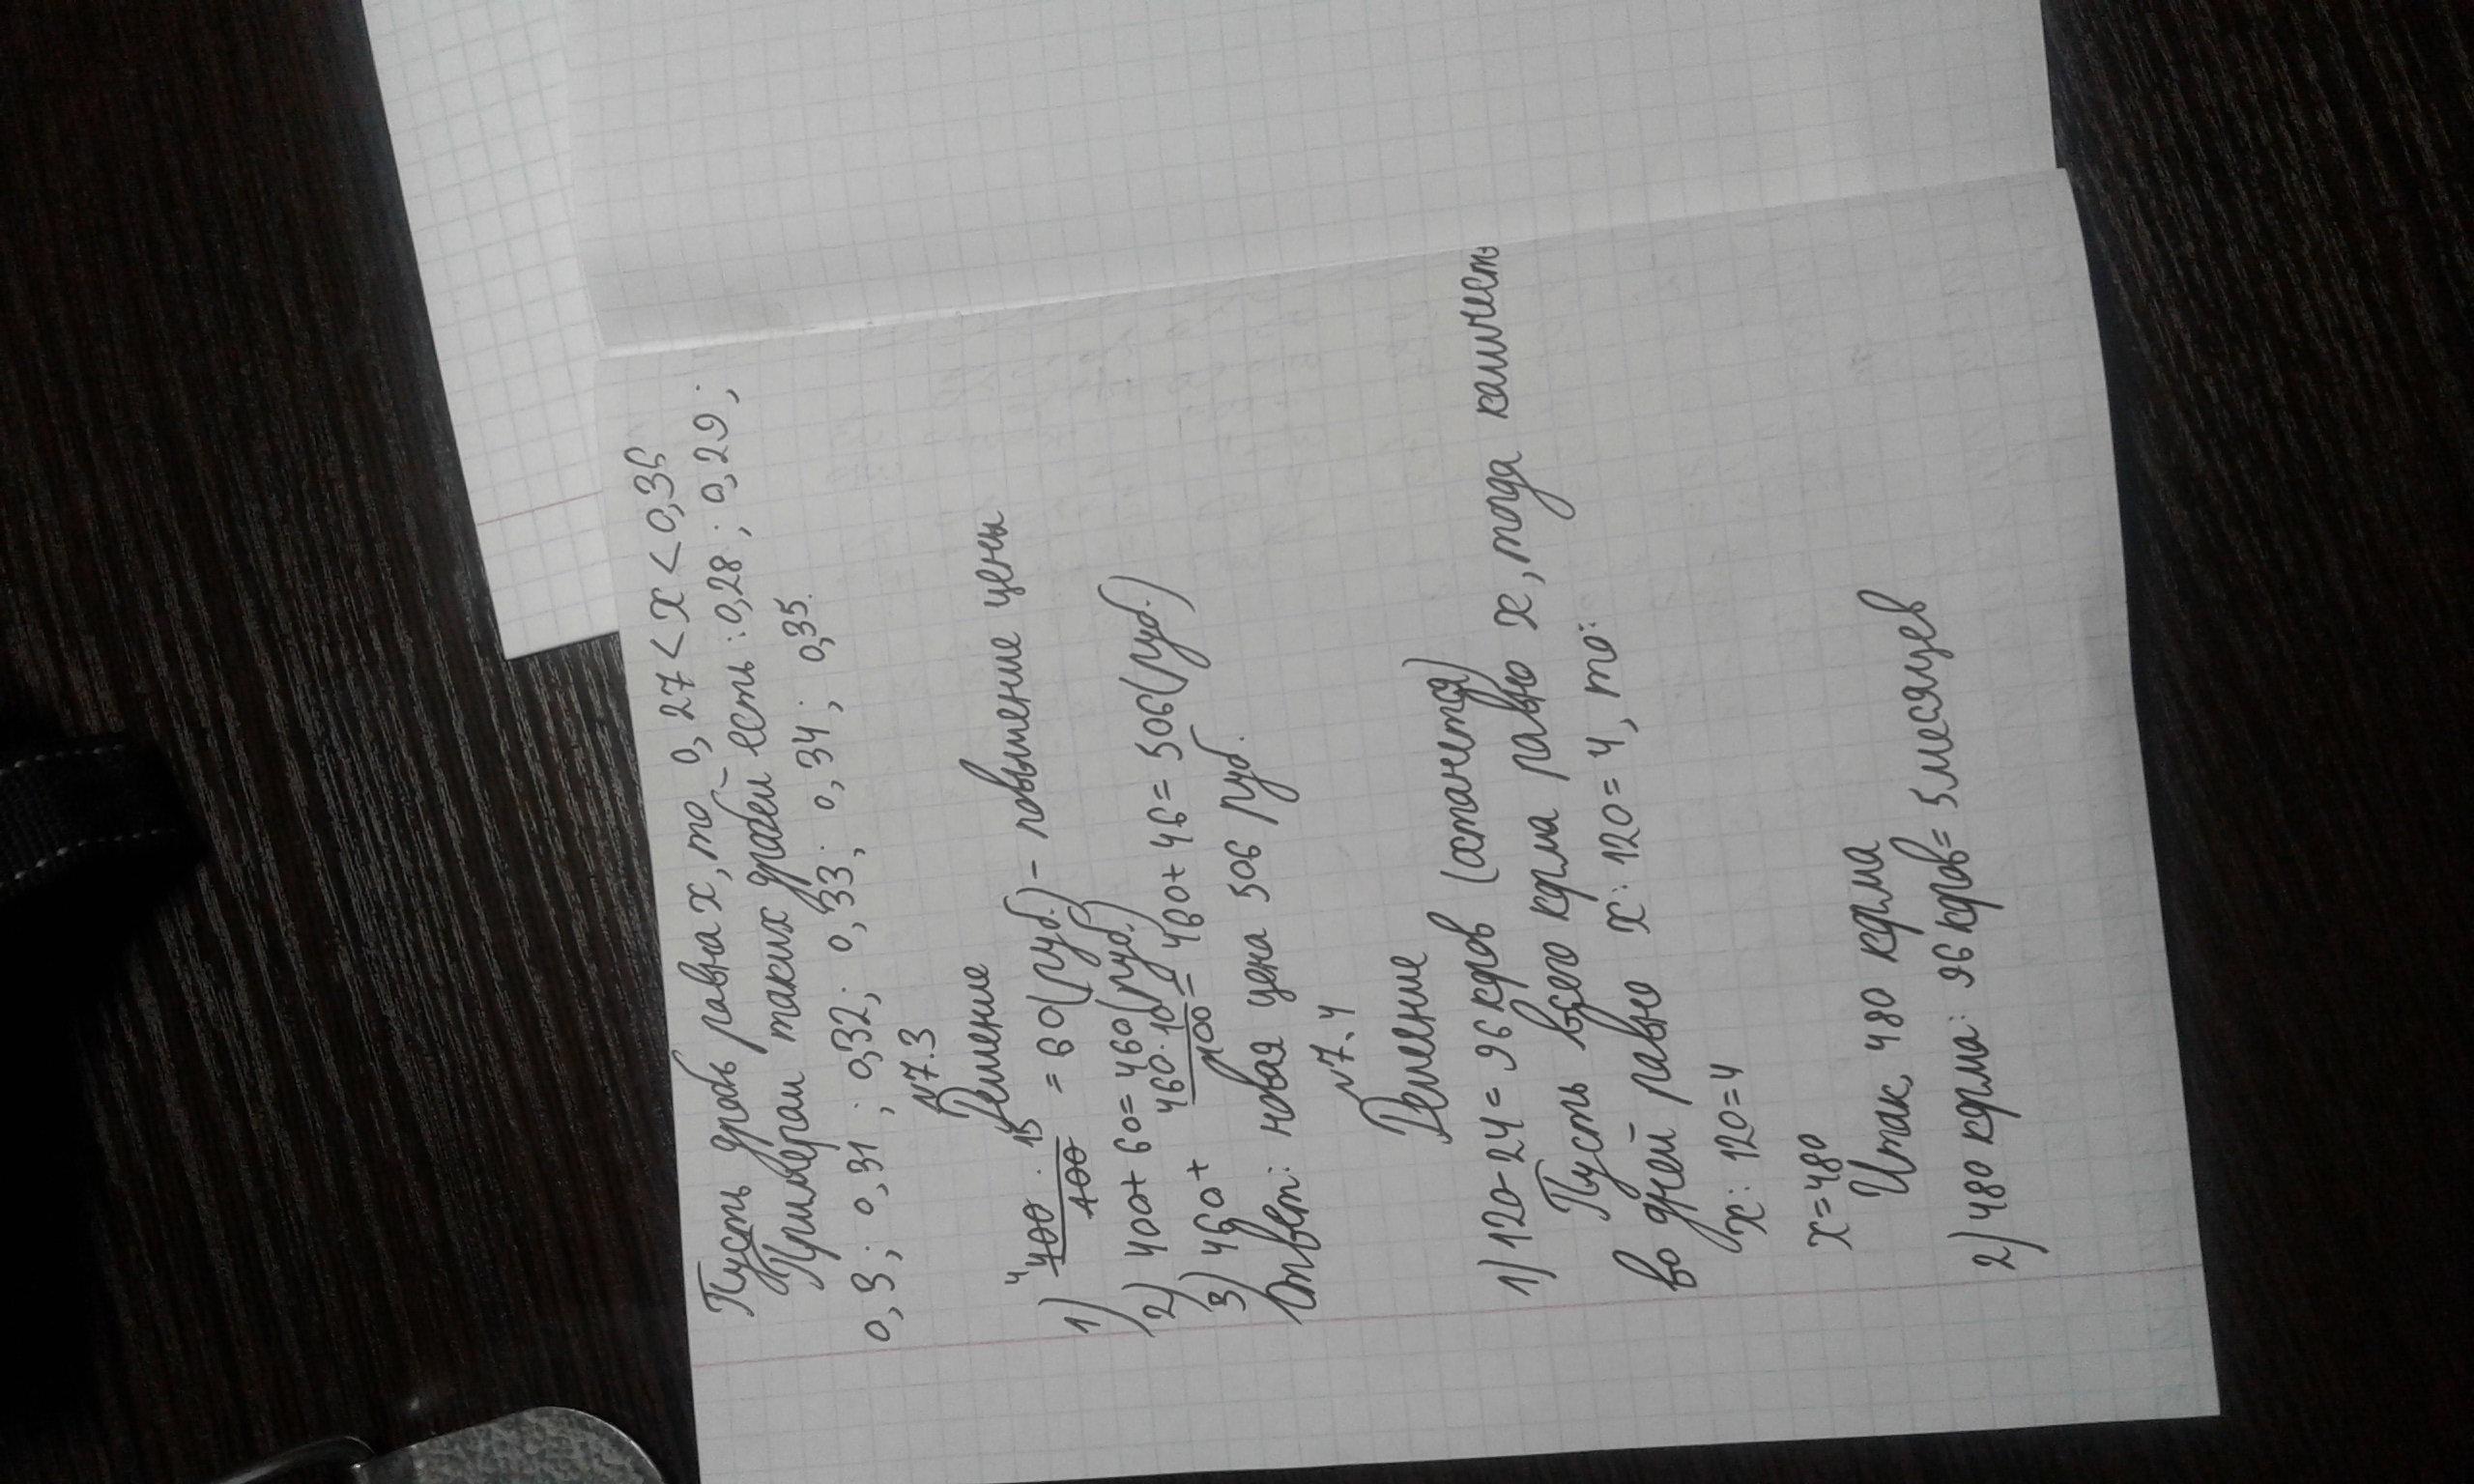 Пусть дробь равна х, то 0,27 < х < 0,36
Примерам таких дробей есть: 0,28; 0,29;
0,3; 0,31; 0,32; 0,33; 0,34; 0,35.
№7.3
Решение
1) 4 400 · 15 / 100 = 60 (руб.) - повышение цены
2) 400 + 60 = 460 (руб.)
3) 460 + 460 · 10 / 100 = 460 + 46 = 506 (руб.)
Ответ: новая цена 506 руб.
№7.4
Решение
1) 120 - 24 = 96 коров (останется)
Пусть всего корма равно х, тогда количест
во дней равно х : 120 = 4, то:
х : 120 = 4
х = 480
Итак, 480 корма
2) 480 корма : 96 коров = 5 месяцев